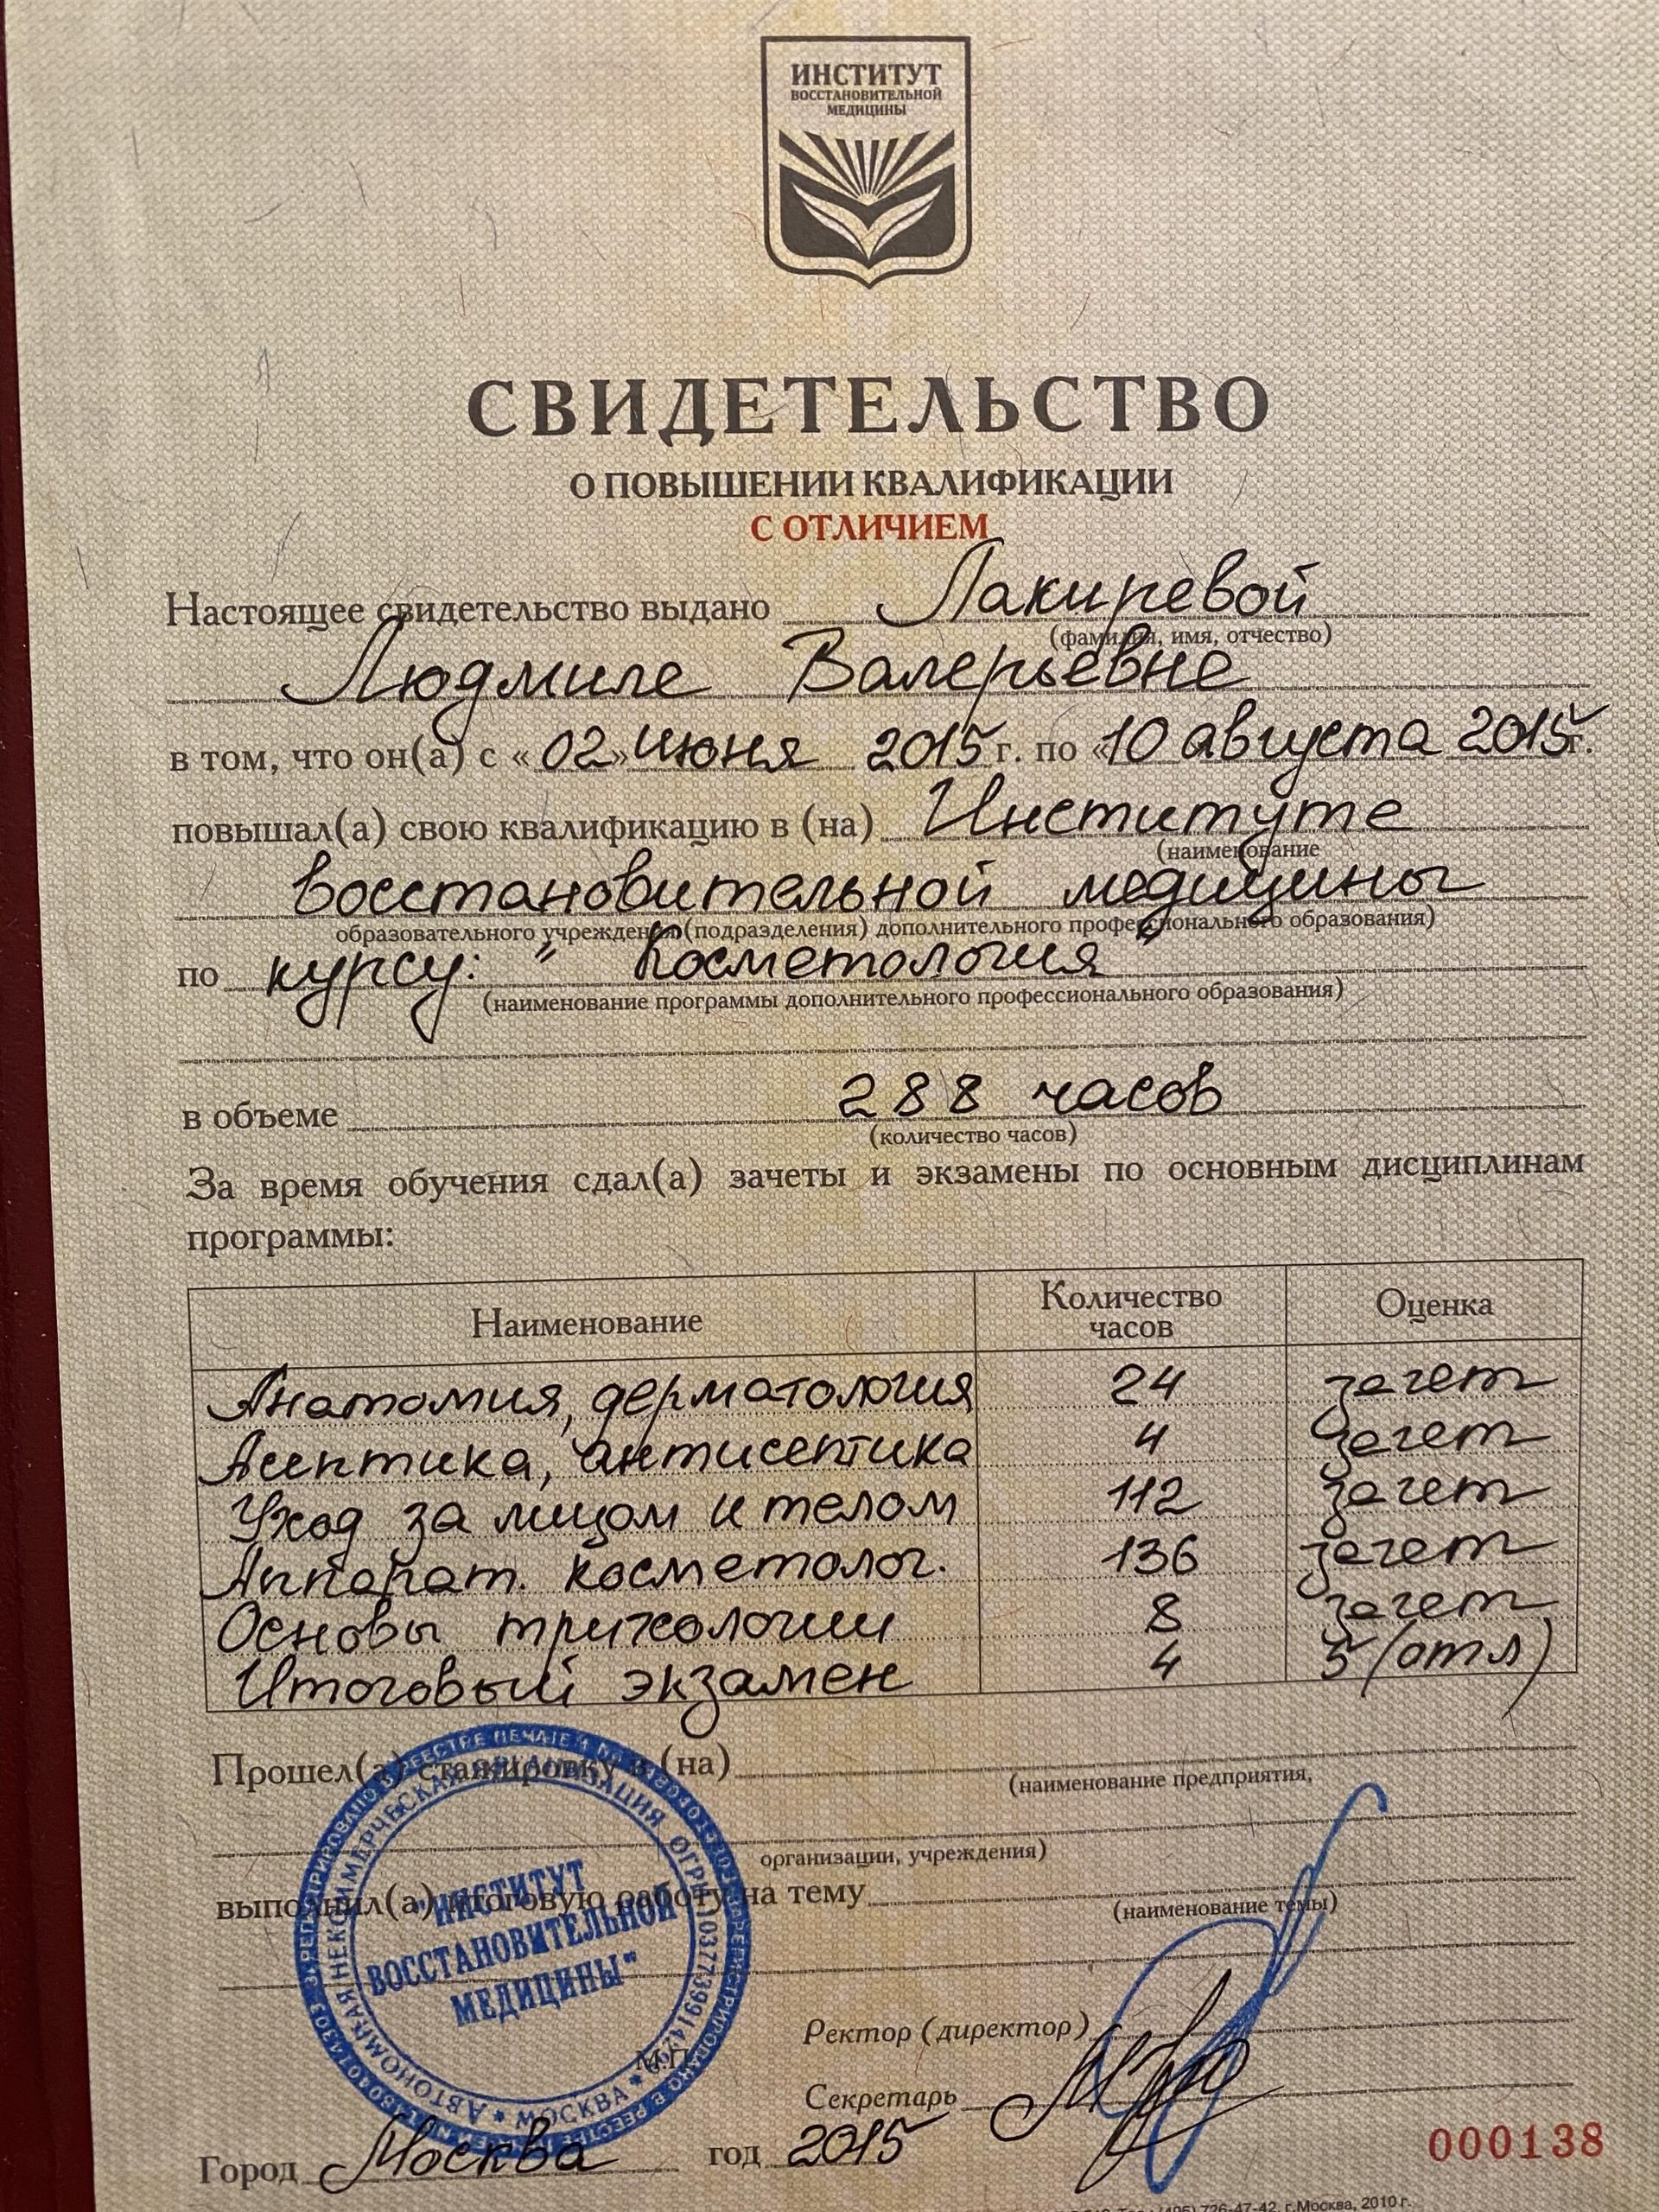 ИНСТИТУТ
ВОССТАНОВИТЕЛЬНОЙ
МЕДИЦИНЫ
СВИДЕТЕЛЬСТВО
О ПОВЫШЕНИИ КВАЛИФИКАЦИИ
С ОТЛИЧИЕМ
Настоящее свидетельство выдано Лакиревой
(фамилия, имя, отчество)
Людмиле Валерьевне
в том, что он(а) с «02» июня 2015 г. по «10 августа 2015 г.
повышал(а) свою квалификацию в (на) Институте
(наименование
восстановительной медицины
образовательного учреждения (подразделения) дополнительного профессионального образования)
по курсу: "Косметология"
(наименование программы дополнительного профессионального образования)
в объеме 288 часов
(количество часов)
За время обучения сдал(а) зачеты и экзамены по основным дисциплинам
программы:
Наименование Количество часов Оценка
Анатомия, дерматология 24 зачет
Асептика, антисептика 4 зачет
Уход за лицом и телом 112 зачет
Аппарат. косметолог. 136 зачет
Основы трихологии 8 зачет
Итоговый экзамен 4 5 (отл)
Прошел(а) стажировку в (на)
(наименование предприятия,
организации, учреждения)
выполнил(а) итоговую работу на тему
(наименование темы)
АВТОНОМНАЯ НЕКОММЕРЧЕСКАЯ ОРГАНИЗАЦИЯ ОГРН
* МОСКВА *
"ИНСТИТУТ
ВОССТАНОВИТЕЛЬНОЙ
МЕДИЦИНЫ"
М.П.
Ректор (директор)
Секретарь
Город Москва год 2015
000138
726-47-42, г.Москва, 2010 г.